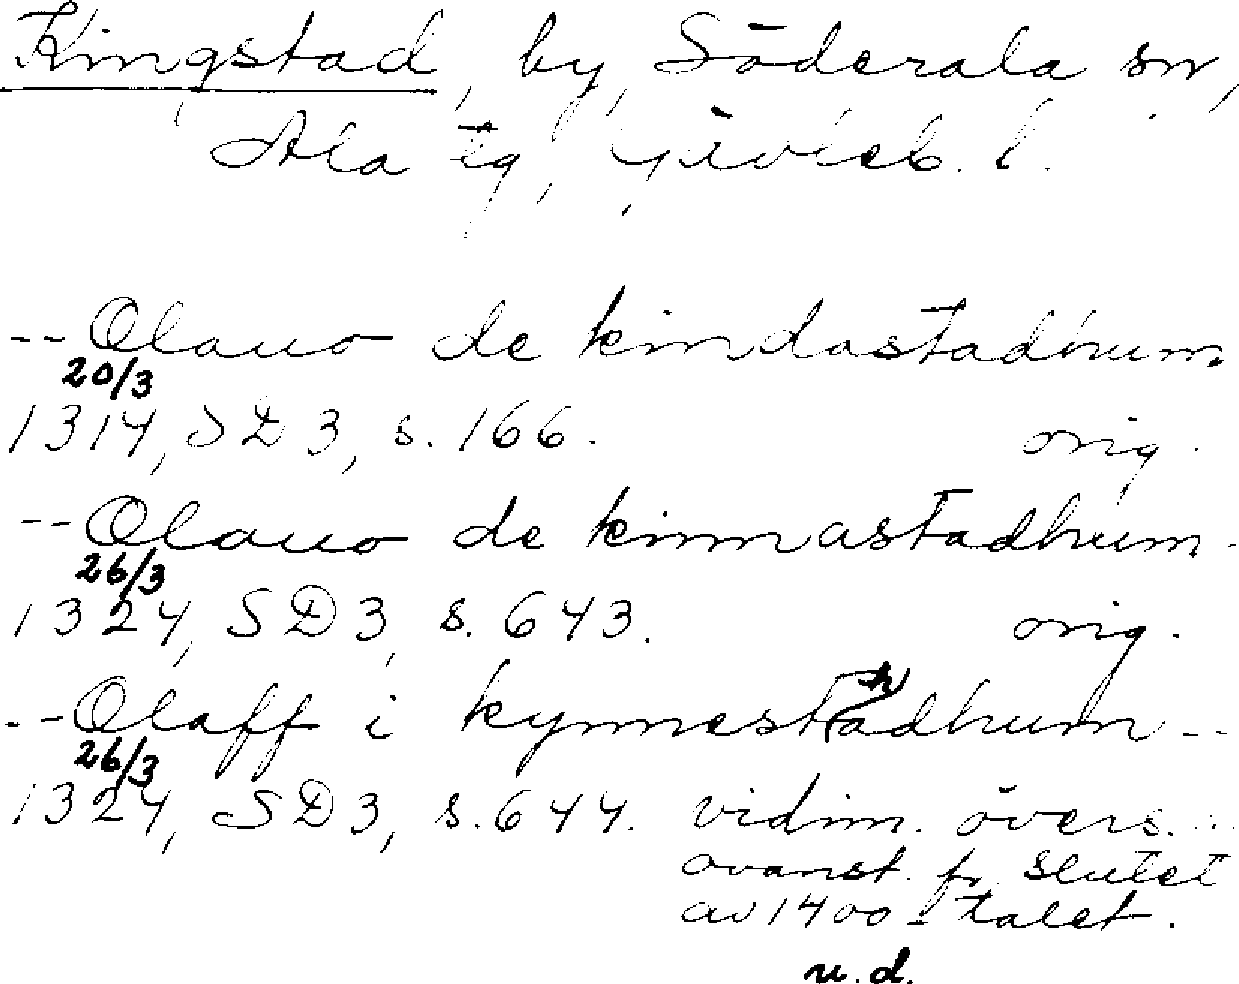 Kingstad, by, Söderala sn,
Ala tg, Gävleb. l.
-- Olauo de kindastadhum.
20/3
1314, SD 3, s. 166. orig.
-- Olauo de kinnastadhum.
26/3
1324, SD 3, s. 643. orig.
-- Olaff i kynnesthadhum --
26/3
1324, SD 3, s. 644. vidim. övers. ...
ovanst. fr. slutet
av 1400-talet.
u.d.